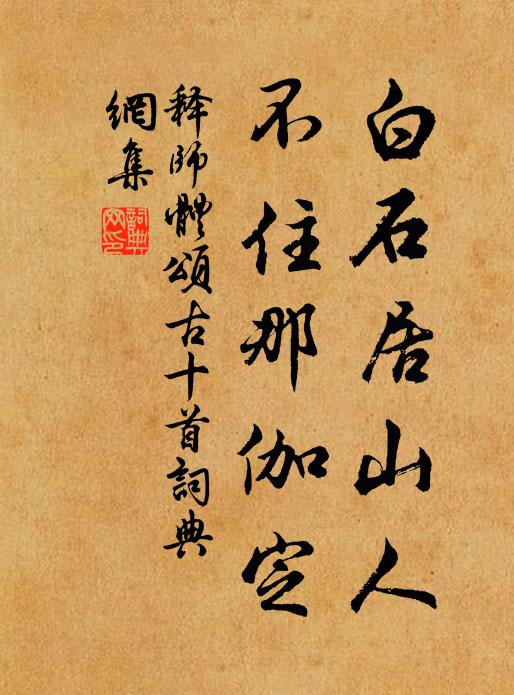 白石居山人
不住那伽定
释師體頌古十首詞典
網集
詞典
网印